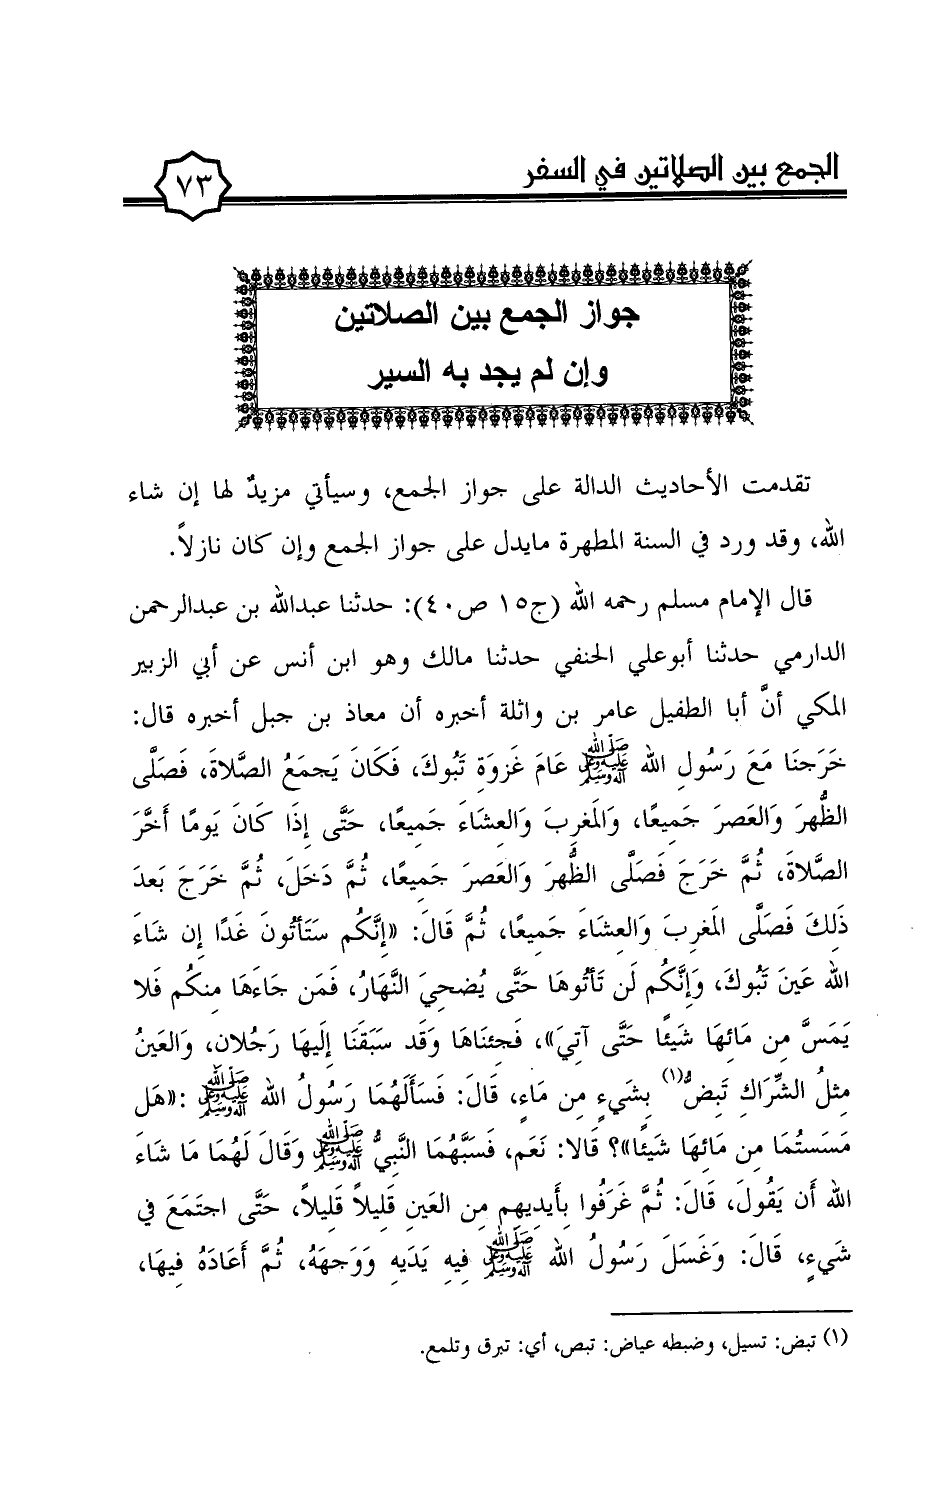 الجمع بين الصلاتين في السفر
٧٣
جواز الجمع بين الصلاتين
وإن لم يجد به السير
تقدمت الأحاديث الدالة على جواز الجمع، وسيأتي مزيدٌ لها إن شاء
الله، وقد ورد في السنة المطهرة مايدل على جواز الجمع وإن كان نازلاً.
قال الإمام مسلم رحمه الله (ج١٥ ص٤٠): حدثنا عبدالله بن عبدالرحمن
الدارمي حدثنا أبوعلي الحنفي حدثنا مالك وهو ابن أنس عن أبي الزبير
المكي أنَّ أبا الطفيل عامر بن واثلة أخبره أن معاذ بن جبل أخبره قال:
خَرَجنَا مَعَ رَسُولِ الله ﷺ عَامَ غَزوَةِ تَبُوكَ، فَكَانَ يَجمَعُ الصَّلاةَ، فَصَلَّى
الظُّهرَ وَالعَصرَ جَمِيعًا، وَالمَغرِبَ وَالعِشَاءَ جَمِيعًا، حَتَّى إِذَا كَانَ يَومًا أَخَّرَ
الصَّلاةَ، ثُمَّ خَرَجَ فَصَلَّى الظُّهرَ وَالعَصرَ جَمِيعًا، ثُمَّ دَخَلَ، ثُمَّ خَرَجَ بَعدَ
ذَلِكَ فَصَلَّى المَغرِبَ وَالعِشَاءَ جَمِيعًا، ثُمَّ قَالَ: «إِنَّكُم سَتَأتُونَ غَدًا إِن شَاءَ
الله عَينَ تَبُوكَ، وَإِنَّكُم لَن تَأتُوهَا حَتَّى يُضحِيَ النَّهَارُ، فَمَن جَاءَهَا مِنكُم فَلا
يَمَسَّ مِن مَائِهَا شَيئًا حَتَّى آتِيَ»، فَجِئنَاهَا وَقَد سَبَقَنَا إِلَيهَا رَجُلان، وَالعَينُ
مِثلُ الشِّرَاكِ تَبِضُّ(١) بِشَيءٍ مِن مَاءٍ، قَالَ: فَسَأَلَهُمَا رَسُولُ الله ﷺ :«هَل
مَسَستُمَا مِن مَائِهَا شَيئًا»؟ قَالا: نَعَم، فَسَبَّهُمَا النَّبِيُّ ﷺ وَقَالَ لَهُمَا مَا شَاءَ
الله أَن يَقُولَ، قَالَ: ثُمَّ غَرَفُوا بِأَيدِيهِم مِن العَينِ قَلِيلاً قَلِيلاً، حَتَّى اجتَمَعَ فِي
شَيءٍ، قَالَ: وَغَسَلَ رَسُولُ الله ﷺ فِيهِ يَدَيهِ وَوَجهَهُ، ثُمَّ أَعَادَهُ فِيهَا،
(١) تبض: تسيل، وضبطه عياض: تبص، أي: تبرق وتلمع.